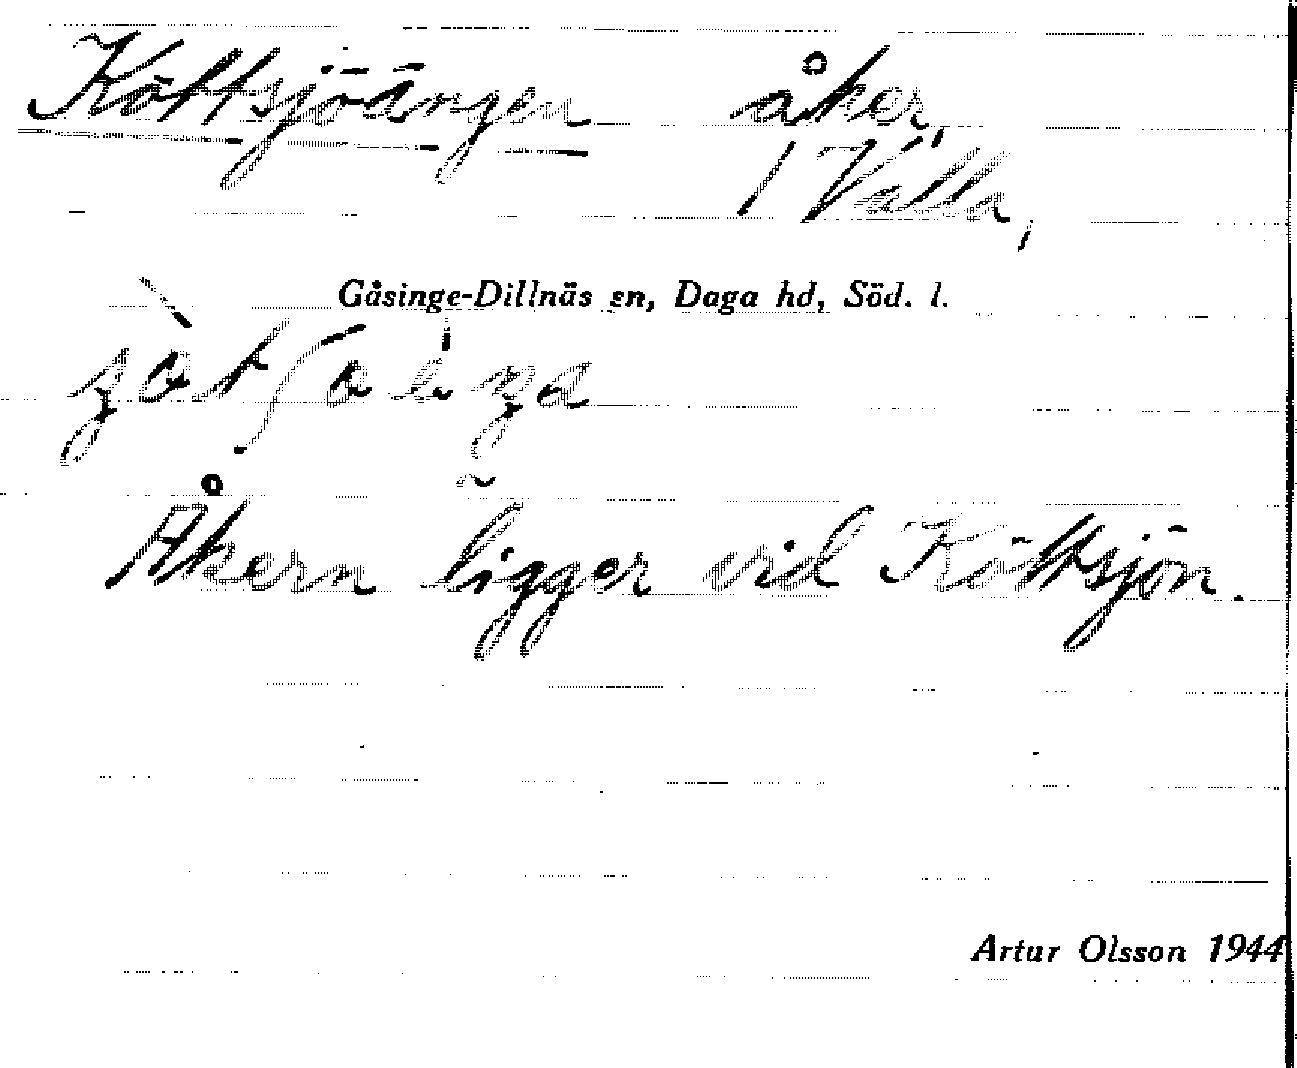 Köttsjöängen åker
1 Valla,
Gåsinge-Dillnäs sn, Daga hd, Söd. l.
Åkern ligger vid Köttsjön.
Artur Olsson 1944